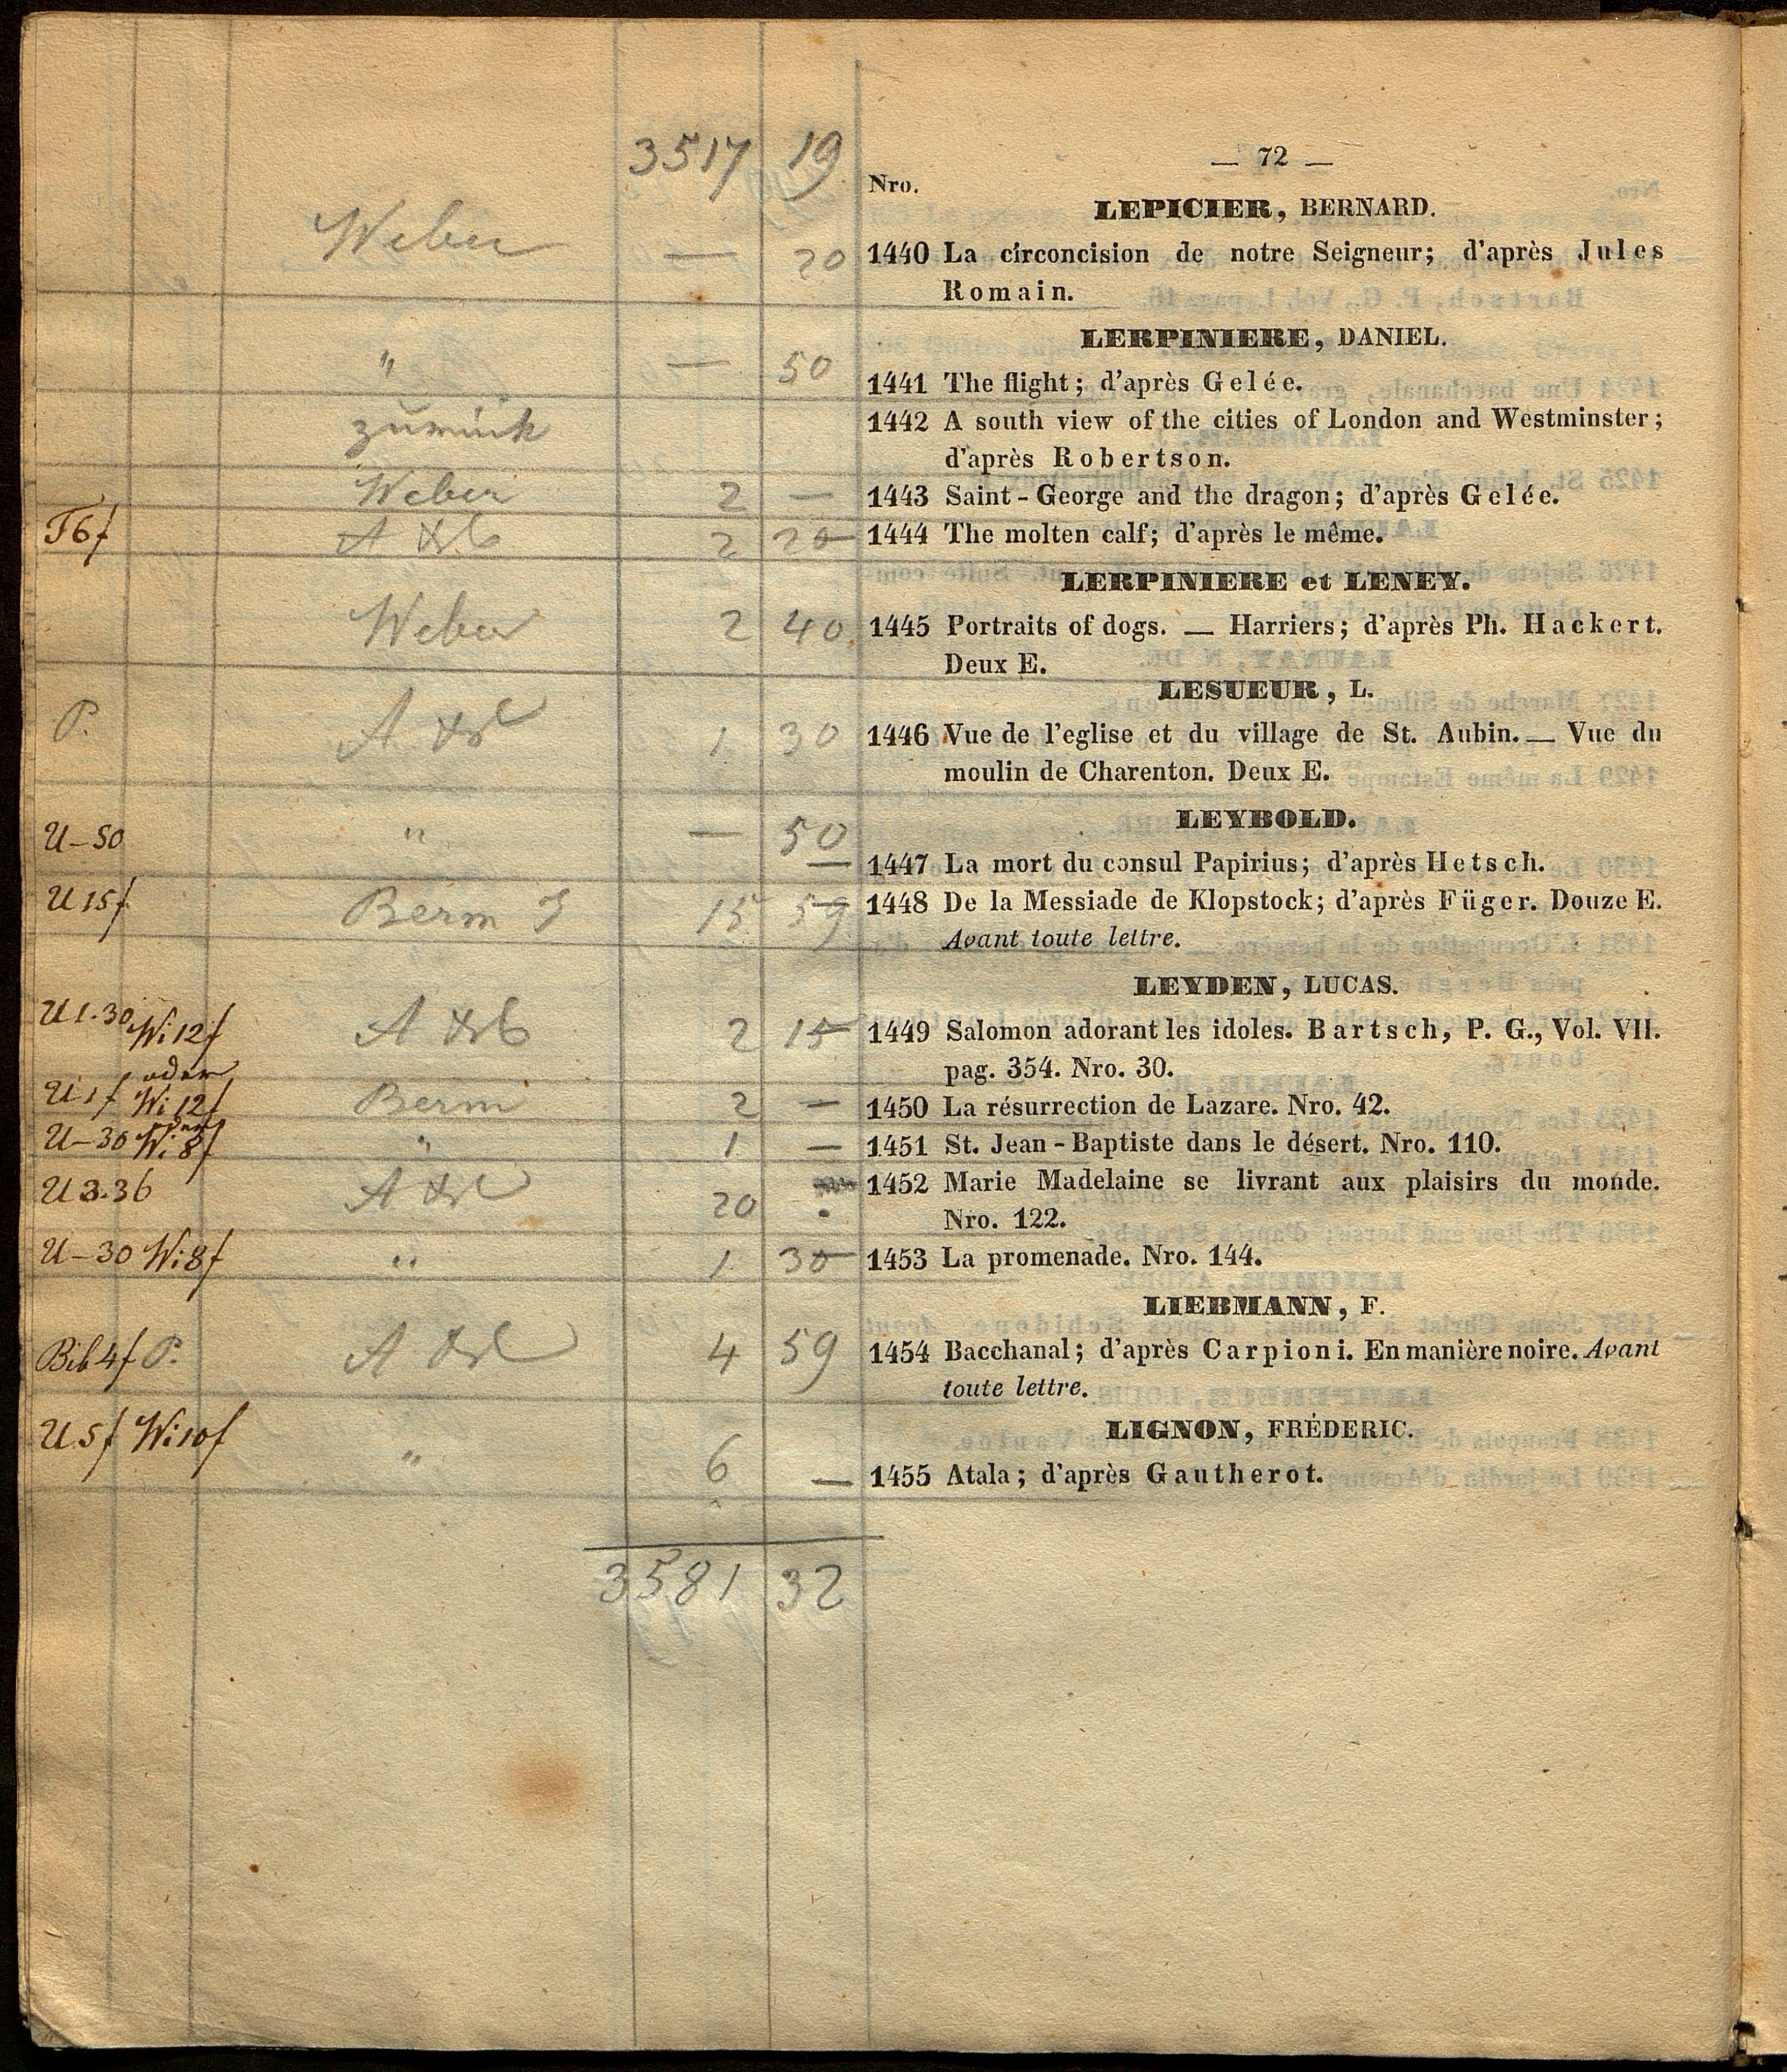 3517 19
— 72 —
Nro.
LEPICIER, BERNARD.
Weber — 20 1440 La circoncision de notre Seigneur; d'après Jules
Romain.
LERPINIERE, DANIEL.
" — 50 1441 The flight; d'après Gelée.
zurück 1442 A south view of the cities of London and Westminster;
d'après Robertson.
Weber 2 — 1443 Saint-George and the dragon; d'après Gelée.
T6f 2 20 1444 The molten calf; d'après le même.
LERPINIERE et LENEY.
Weber 2 40 1445 Portraits of dogs. — Harriers; d'après Ph. Hackert.
Deux E.
LESUEUR, L.
P. 1 30 1446 Vue de l'eglise et du village de St. Aubin. — Vue du
moulin de Charenton. Deux E.
LEYBOLD.
U–50 " — 50 1447 La mort du consul Papirius; d'après Hetsch.
U 15f Berm 15 59 1448 De la Messiade de Klopstock; d'après Füger. Douze E.
Avant toute lettre.
LEYDEN, LUCAS.
U1.30 Wi12f 2 15 1449 Salomon adorant les idoles. Bartsch, P. G., Vol. VII.
pag. 354. Nro. 30.
oder
U1f Wi12f Berm 2 — 1450 La résurrection de Lazare. Nro. 42.
U–30 Wi8f " 1 — 1451 St. Jean-Baptiste dans le désert. Nro. 110.
U3.36 20 1452 Marie Madelaine se livrant aux plaisirs du monde.
Nro. 122.
U–30 Wi8f " 1 30 1453 La promenade. Nro. 144.
LIEBMANN, F.
Bib4f P. 4 59 1454 Bacchanal; d'après Carpioni. En manière noire. Avant
toute lettre.
LIGNON, FRÉDERIC.
U5f Wi10f " 6 — 1455 Atala; d'après Gautherot.
3581 32